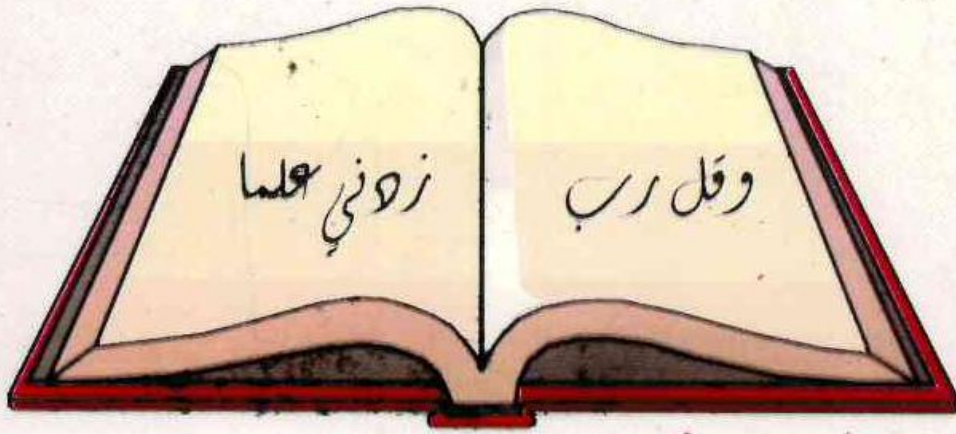 وقل رب زدني علما